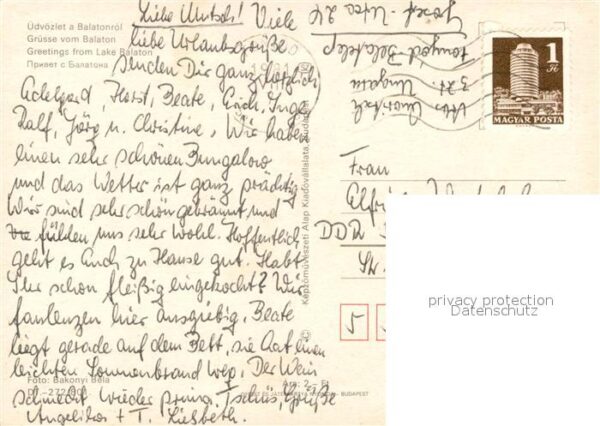 Üdvözlet a Balatonról
Grüsse vom Balaton
Greetings from Lake Balaton
Привет с Балатона
Liebe Mutsch! Viele
liebe Urlaubsgrüße
senden Dir ganz herzlich
Edelgard, Horst, Beate, Erich, Inge
Ralf, Jörg u. Christine, Wir haben
einen sehr schönen Bungalow
und das Wetter ist ganz prächtig
Wir sind sehr schön gebräunt und
fühlen uns sehr wohl. Hoffentlich
geht es Euch zu Hause gut. Habt
Ihr schon fleißig eingekocht? Wir
faulenzen hier ausgiebig. Beate
liegt gerade auf dem Bett, sie hat einen
leichten Sonnenbrand weg. Der Wein
schmeckt wieder prima. Tschüs, Grüße
Angelika + T. Lisbeth.
Foto: Bakonyi Béla
Ára: 2,- Ft
BUDAPEST
Képzőművészeti Alap Kiadóvállalata, Budapest
József-Utca 24
Ungarn
1
Ft
MAGYAR POSTA
Frau
DDR
5
privacy protection
Datenschutz